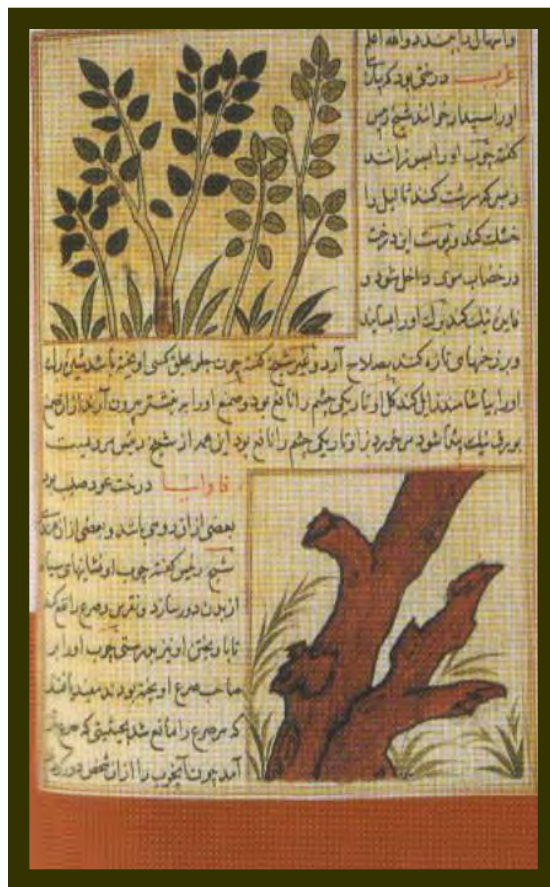 واسهال را بهندد والله اعلم
غرب درختی بود که پارسی
او را اسپیدار خوانند شیخ رئیس
کفته چوب او را بسوزانند
و بسرکه سرشت کنند ثالیل را
خشک کند و پوست این درخت
در خضاب موی داخل شود و
فاین نیک کند برک او را بسایند
و بر زخمهای تازه کنند بصلاح آرد و غیر شیخ کفته چون جلو بحلق کسی اویخته باشد
او را بیاشامند زایل کند کل او تاریکی چشم را نافع بود و صمغ او را به نشتر بیرون آورند از آن
نیک پیدا شود تاریکی چشم را نافع بود این همه از شیخ رئیس مرویست
فاوانیا درخت عود صلیب بود
بعضی از آن رومی باشد و بعضی از آن هندی
شیخ رئیس کفته چوب او نشانهای سیاه
از بدن دور سازد و نقرس و صرع را نفع کند
تا با ویختن او نیز بدرستی چوب او را بر
صاحب صرع اویخته بودند میدیدند
که مر صرع را مانع شد بحیثیتی که
آمد چون آن چوب را از آن شخص دور کردند